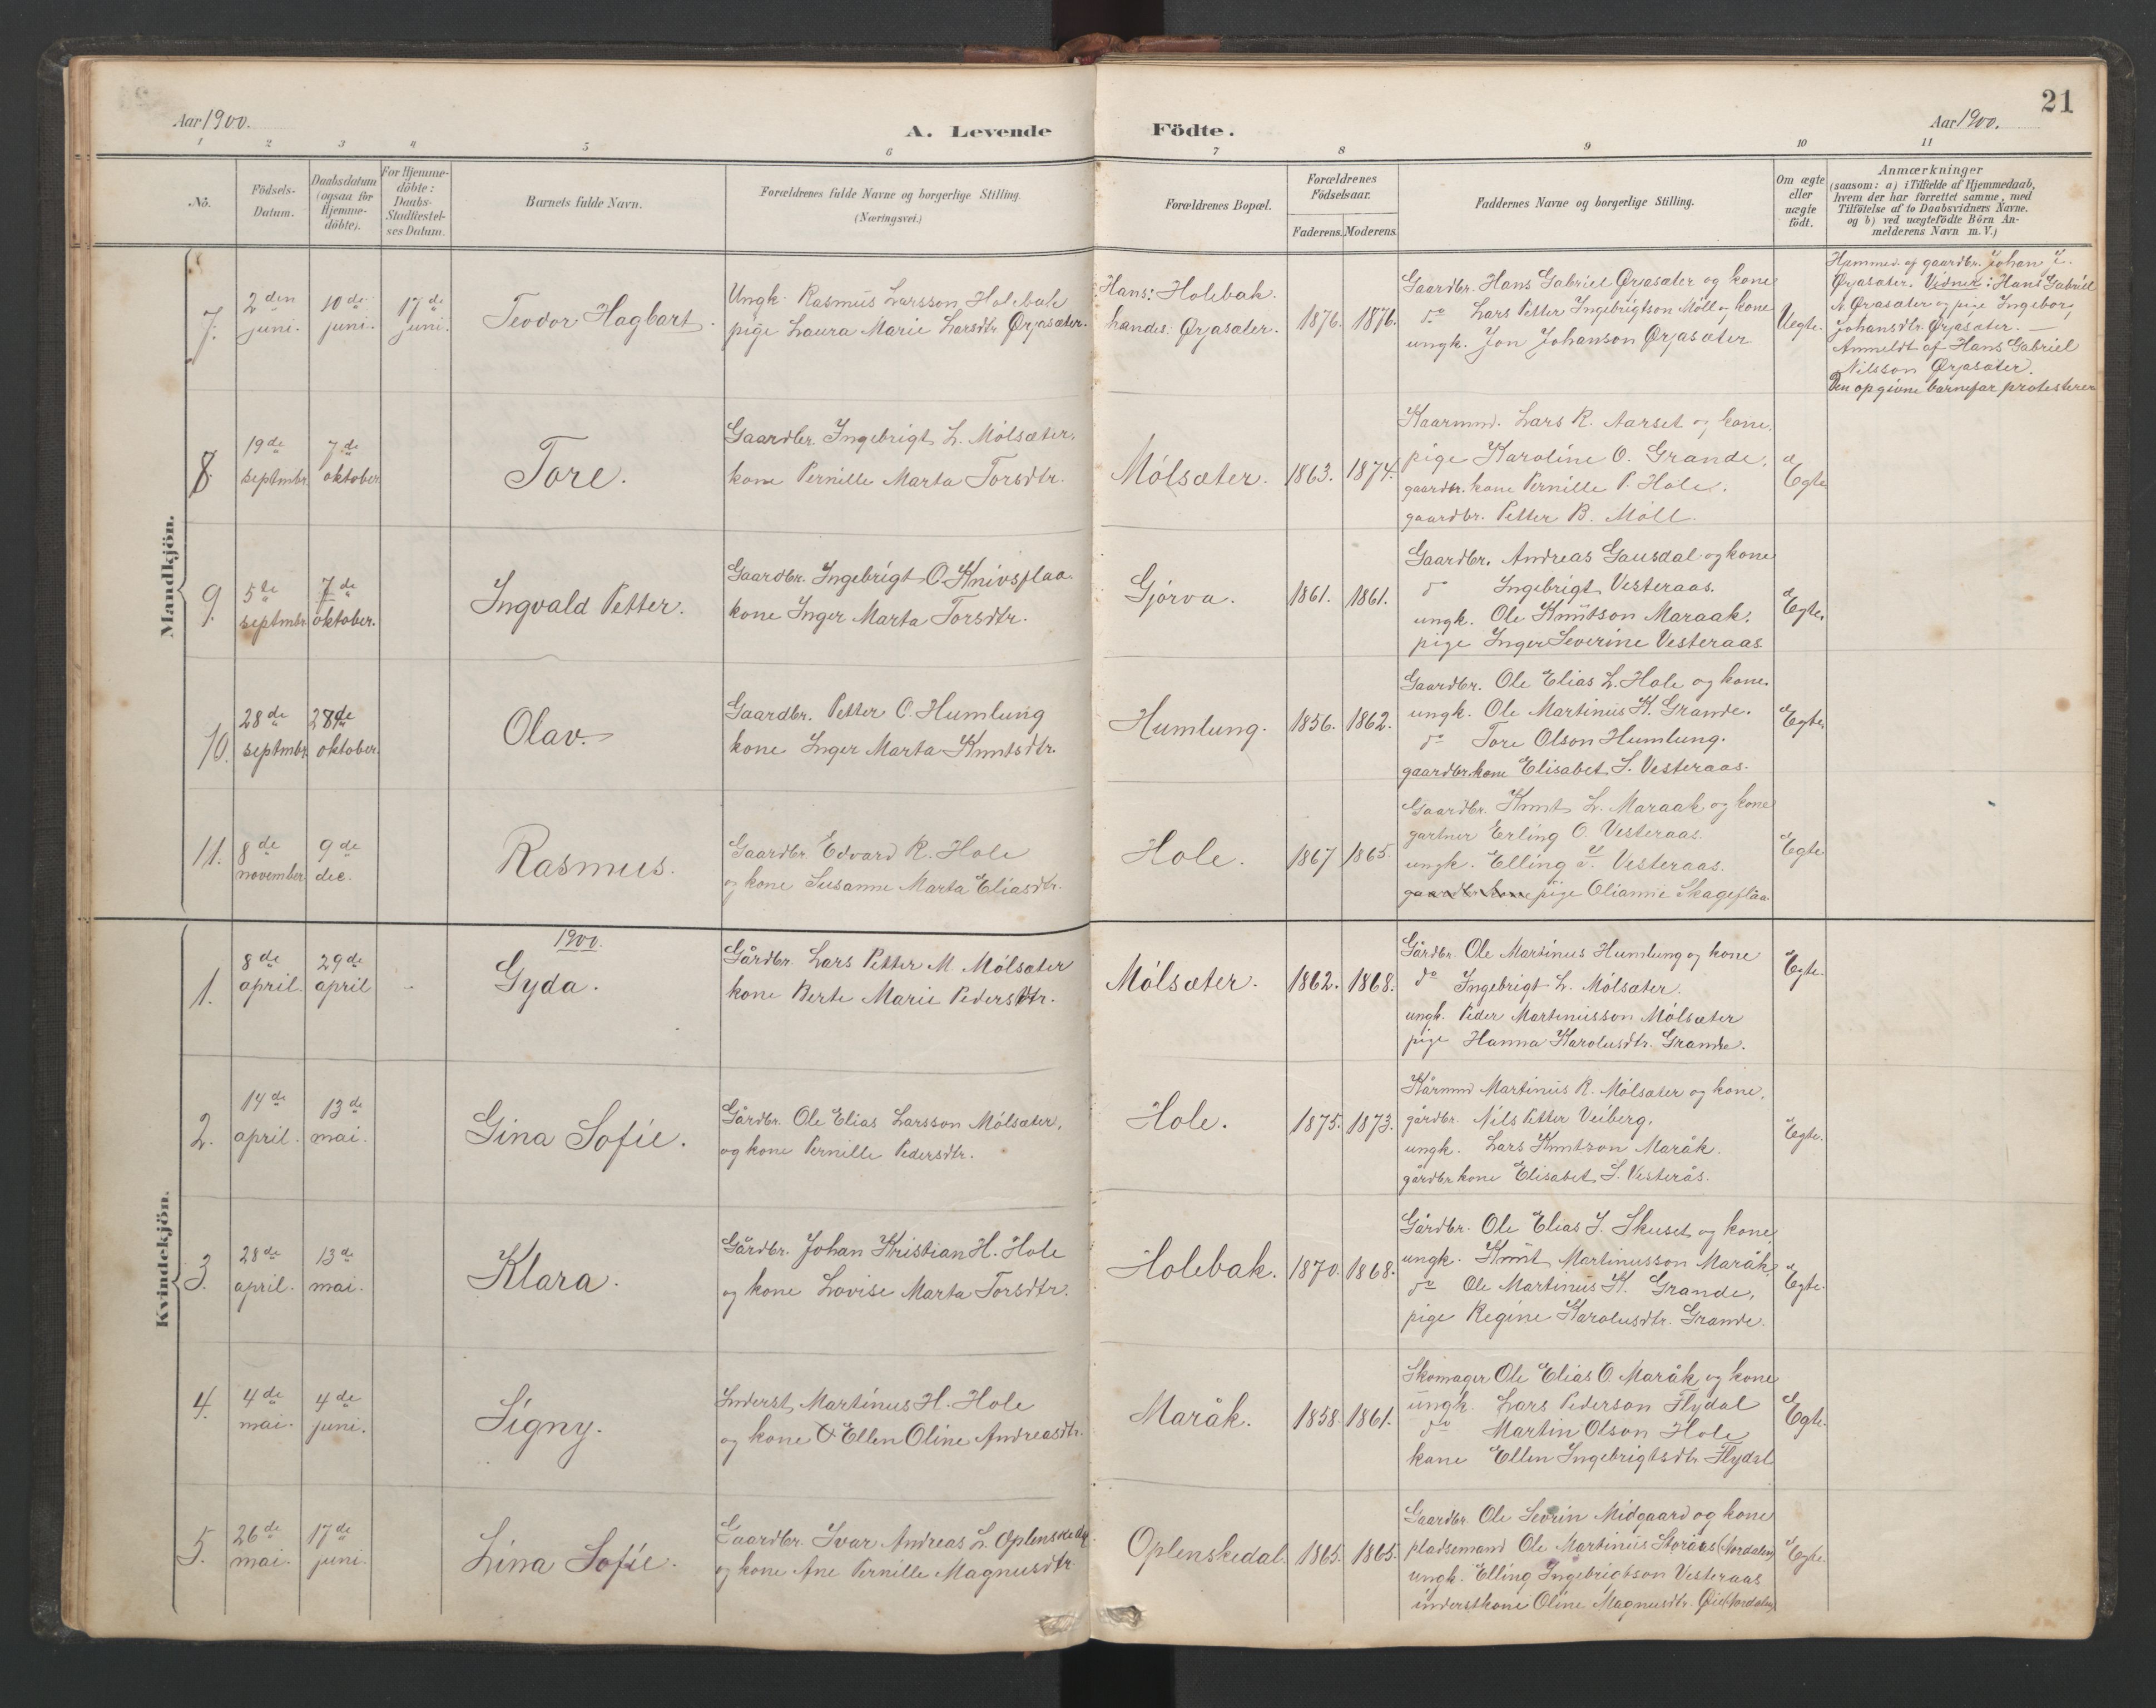 21
Aar 1900.
A. Levende Födte.
Aar 1900.
1 2 3 4 5 6 7 8 9 10 11
No.
Födsels-
Datum.
Daabsdatum
(ogsaa for
Hjemme-
döbte).
For Hjemme-
döbte:
Daabs-
Stadfæstel-
ses Datum.
Barnets fulde Navn.
Forældrenes fulde Navne og borgerlige Stilling.
(Næringsvei.)
Forældrenes Bopæl.
Forældrenes
Födselsaar.
Faderens. Moderens.
Faddernes Navne og borgerlige Stilling.
Om ægte
eller
uægte
födt.
Anmærkninger
(saasom: a) i Tilfælde af Hjemmedaab,
hvem der har forrettet samme, med
Tilföielse af to Daabsvidners Navne.
og b) ved uægtefödte Börn An-
melderens Navn m. V.)
Mandkjön.
7.
2den
juni.
10de
juni.
17de
juni.
Teodor Hagbart.
Ungk. Rasmus Larsson Holebak
pige Laura Marie Larsdtr Ørjasæter.
Hans: Holebak.
hendes: Ørjasæter.
1876. 1876.
Gaardbr. Hans Gabriel Ørjasæter og kone
do Lars Petter Ingebrigtson Möll og kone
ungk. Jon Johanson Ørjasæter
Uegte.
Hjemmed. af gaardbr. Johan L.
Ørjasæter. Vidner: Hans Gabriel
N. Ørjasæter og pige Ingebor,
Johansdtr. Ørjasæter. —
Anmeldt af Hans Gabriel
Nilsson Ørjasæter.
Den opgivne barnefar protesterer
8.
19de
septmbr
7de
oktober
Tore.
Gaardbr. Ingebrigt L. Mólsæter.
kone Pernille Marta Torsdtr.
Mólsæter.
1863. 1874.
Kaarmnd. Lars R. Aarset og kone,
pige Karoline O. Grande,
gaardbr. kone Pernille P. Hole.
gaardbr. Petter B. Möll.
Egte
9.
5te
septmbr
7de
oktober.
Ingvald Petter.
Gaardbr. Ingebrigt O. Knivsflaa.
kone Inger Marta Torsdtr.
Gjörva.
1861. 1861.
Gaardbr. Andreas Gausdal og kone
do Ingebrigt Vesteraas.
ungk. Ole Knutson Maraak.
pige Inger Severine Vesteraas.
Egte.
10.
28de
septmbr
28de
oktober.
Olav.
Gaardbr. Petter O. Humlung
kone Inger Marta Knutsdtr.
Humlung.
1856. 1862.
Gaardbr. Ole Elias L. Hole og kone.
ungk. Ole Martinus K. Grande.
do Tore Olson Humlung.
gaardbr.kone Elisabet S. Vesteraas.
Egte.
11.
8de
november
9de
dec.
Rasmus.
Gaardbr. Edvard R. Hole
og kone Susanne Marta Eliasdtr.
Hole.
1867 1865
Gaardbr. Knut L. Maraak og kone
gartner Erling O. Vesteraas.
ungk. Elling I. Vesteraas.
gaardbr kone pige Olianne Skageflaa.
Egte
Kvindekjön.
1900.
1.
8de
april.
29de
april
Gyda.
Gårdbr. Lars Petter M. Mólsæter
kone Berte Marie Pedersdtr.
Mólsæter.
1862. 1868.
Gårdbr. Ole Martinus Humlung og kone
do Ingebrigt L. Mólsæter.
ungk. Peder Martinusson Mólsæter
pige Hanna Karolusdtr. Grande.
Egte.
2.
14de
april.
13de
mai.
Gina Sofie.
Gårdbr. Ole Elias Larsson Mólsæter,
og kone Pernille Pedersdtr.
Hole.
1875. 1873.
Kårmnd Martinus R. Mólsæter og kone,
gårdbr. Nils Petter Veiberg,
ungk. Lars Knutson Maråk.
gårdbr kone Elisabet S. Vesterås.
Egte.
3.
28de
april.
13de
mai.
Klara.
Gårdbr. Johan Kristian H. Hole
og kone Lovise Marta Torsdtr.
Holebak.
1870. 1868.
Gårdbr. Ole Elias J. Skuset og kone
ungk. Knut Martinusson Maråk,
do Ole Martinus K. Grande,
pige Regine Karolusdtr. Grande.
Egte.
4.
4de
mai.
4de
juni.
Signy.
Inderst Martinus H. Hole
og kone Ellen Oline Andreasdtr.
Maråk.
1858. 1861.
Skomager Ole Elias O. Maråk og kone
ungk. Lars Pederson Flydal
do Martin Olson Hole
kone Ellen Ingebrigtsdtr Flydal
Egte.
5.
26de
mai.
17de
juni.
Lina Sofie.
Gaardbr. Ivar Andreas L. Oplenskedal
og kone Ane Pernille Magnusdtr
Oplenskedal
1865. 1865.
Gaardbr. Ole Sevrin Midgaard og kone
pladsemand Ole Martinus Storaas (Nordalen)
ungk. Elling Ingebrigtson Vesteraas
inderstkone Oline Magnusdtr. Øie (Nordalen)
Egte.